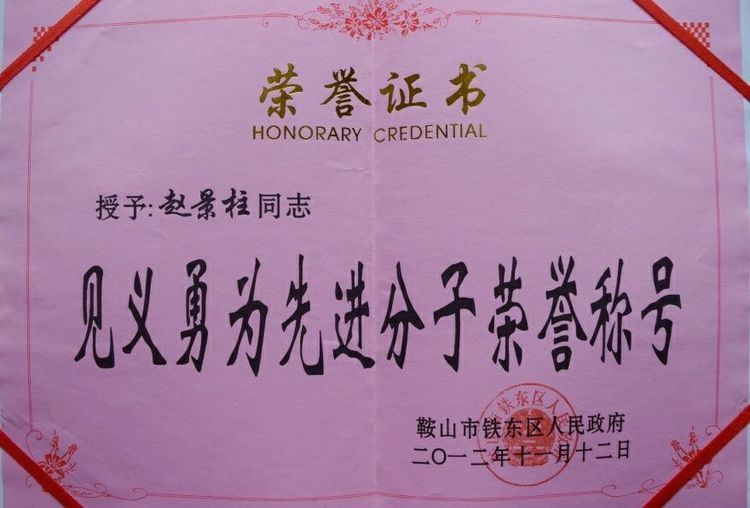 荣誉证书
HONORARY CREDENTIAL
授予:赵景柱同志
见义勇为先进分子荣誉称号
鞍山市铁东区人民政府
二〇一二年十一月十二日